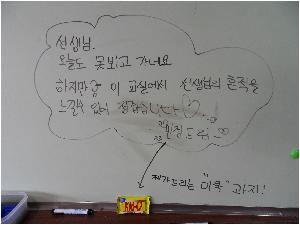 선생님.
오늘도 못보고 가네요
하지만 이 교실에서 선생님의 흔적을
느낄수 있어 행복합니다♡...
드림.
제가드리는 "미쿡" 과자!